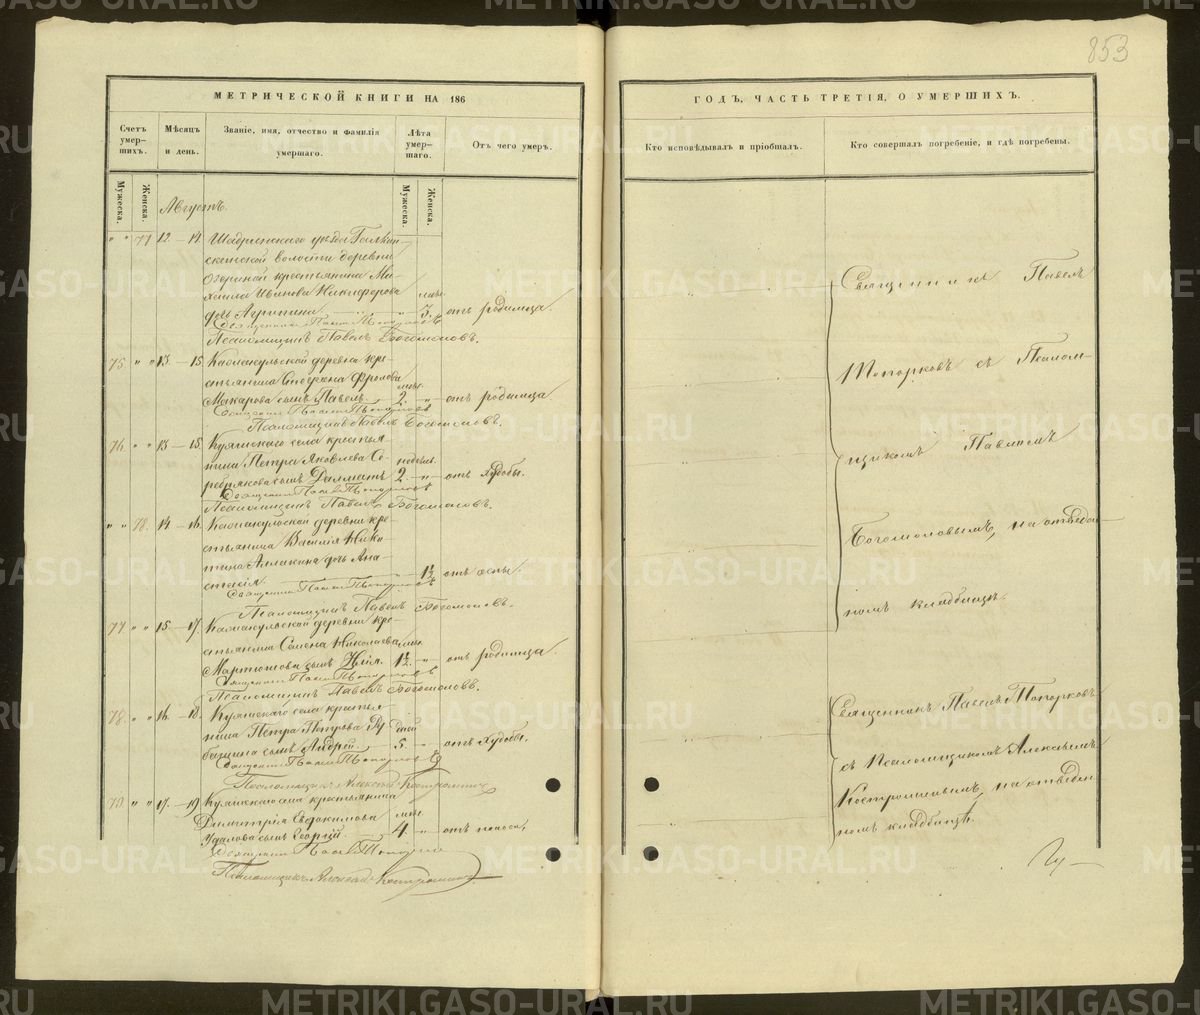 853
МЕТРИЧЕСКОЙ КНИГИ НА 186
Счетъ умер-шихъ.
Мѣсяцъ и день.
Званіе, имя, отчество и фамилія умершаго.
Лѣта умер-шаго.
Отъ чего умеръ.
Мужеска.
Женска.
Мужеска.
Женска.
Августъ.
77 12 – 14 Шадринскаго уѣзда
скинской волости деревни
крестьянина Ми-
хаила Иванова Никифорова
дочь Агрипина мѣс. 3. отъ родимца.
Священникъ Павелъ Топорковъ
Псаломщикъ Павелъ Богомоловъ.
75 " " 13 – 15 деревни кре-
стьянина Стефана Фролова
Макарова сынъ Павелъ. мѣс. 2. " отъ родимца
Священникъ Павелъ Топорковъ
Псаломщикъ Павелъ Богомоловъ.
76. " " 13 – 15. Куяшскаго села кресть
нина Петра Яковлева Се-
ребрякова сынъ Далматъ недѣль. 2. " отъ худобы.
Священникъ Павелъ Топорковъ
Псаломщикъ Павелъ Богомоловъ.
" " 78. 14 – 16. деревни кре-
стьянина Василія Ники-
тина дочь Ана-
стасія 1½ отъ оспы.
Священникъ Павелъ Топорковъ
Псаломщикъ Павелъ Богомоловъ.
77 " " 15 – 17. деревни кре-
стьянина Семена Николаева
Мартюшова сынъ мѣс. 1½. " отъ родимца.
Священникъ Павелъ Топорковъ
Псаломщикъ Павелъ Богомоловъ.
78. " " 16 – 18. Куяшскаго села кресть
нина Петра Петрова Ру-
бцова сынъ Андрей. дней 5. " отъ худобы.
Священникъ Павелъ Топорковъ
Псаломщикъ Алексѣй Костроминъ
79 " " 17. – 19. Куяшскаго села крестьянина
Димитрія Евдокимова
Удалова сынъ Георгій. мѣс. 4 " отъ поноса,
Священникъ Павелъ Топорковъ
Псаломщикъ Алексѣй Костроминъ
ГОДЪ, ЧАСТЬ ТРЕТІЯ, О УМЕРШИХЪ.
Кто исповѣдывалъ и пріобщалъ.
Кто совершалъ погребеніе, и гдѣ погребены.
Священникъ Павелъ
Топорковъ съ Псалом-
щикомъ Павломъ
Богомоловымъ, на отведен
номъ кладбищѣ.
Священникъ Павелъ Топорковъ
съ Псаломщикомъ Алексѣемъ
Костроминымъ, на отведен
номъ кладбищѣ.
METRIKI.GASO-URAL.RU